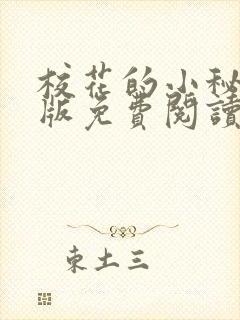 校花的小秘
版免費閱讀
東土三